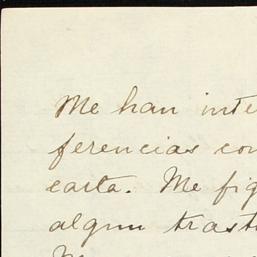 Me han inte
ferencias con
carta. Me fig
algun trast